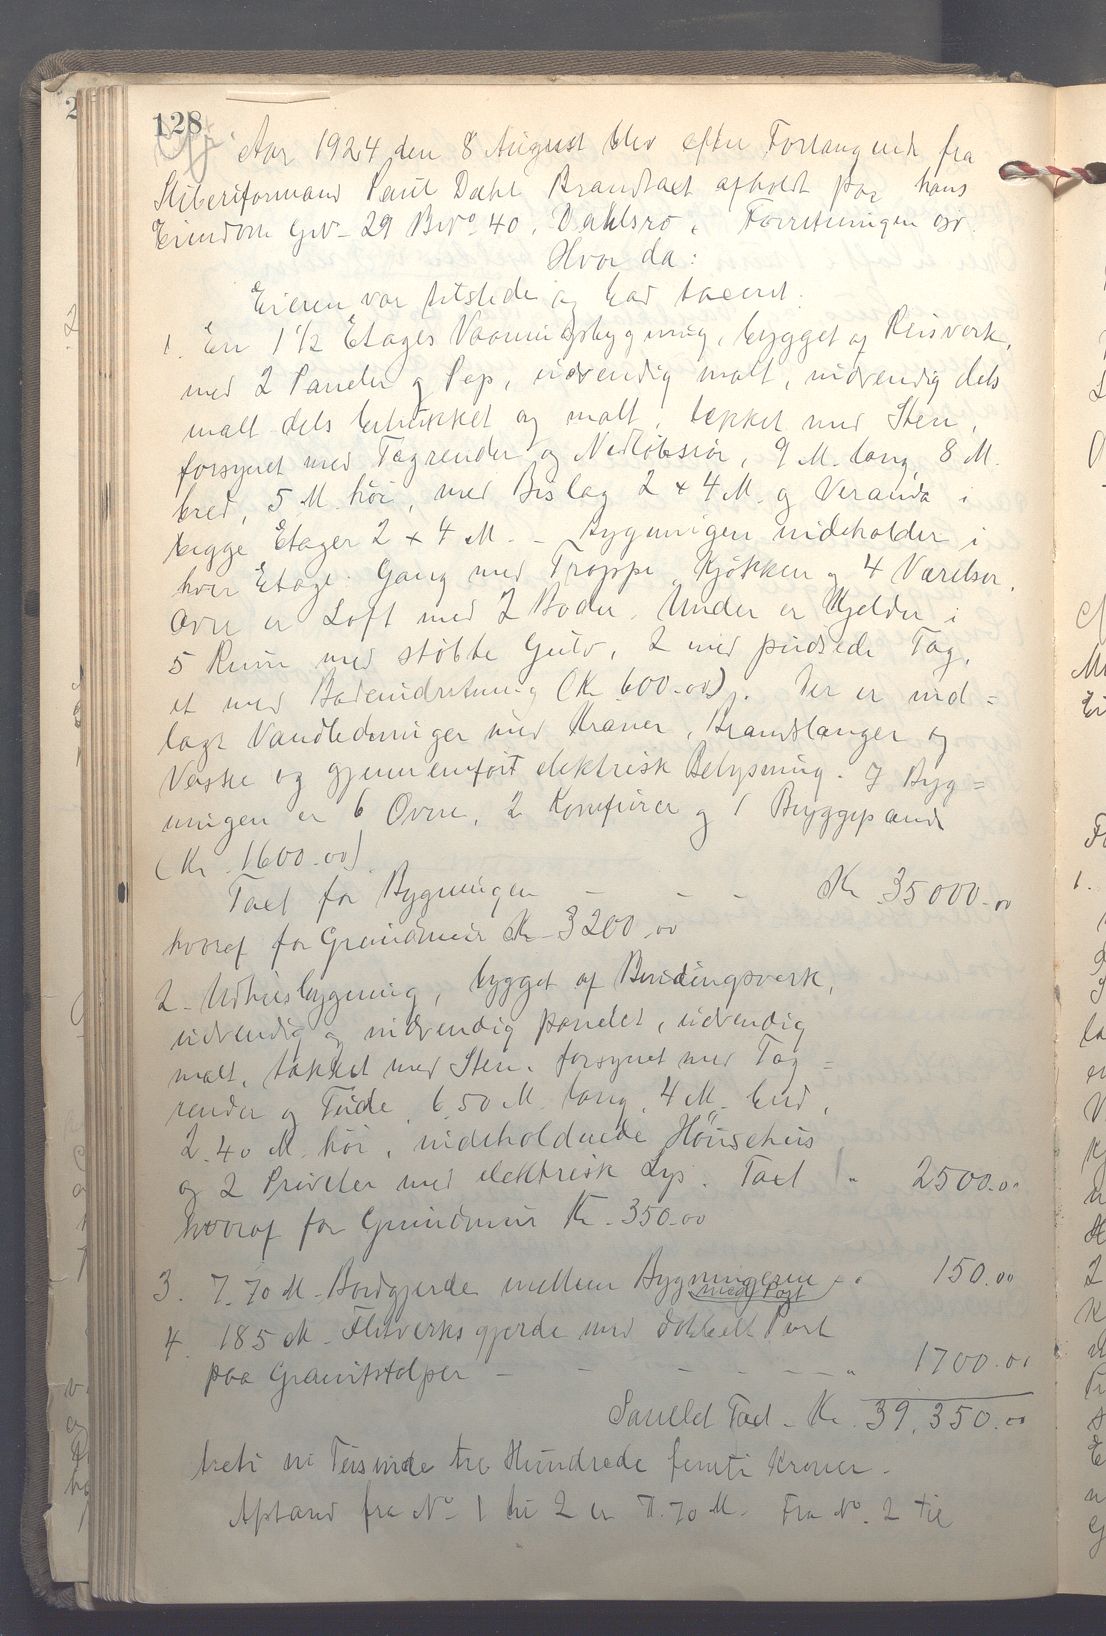 128
Aar 1924 den 8 August blev efter Forlangende fra
Sliberiformand Paul Dahl Brandtaxt afholdt paa hans
Eiendom Gno 29 Bno 40, Dahlsro. Forretningen
Hvor da:
Eieren var tilstede og lod taxeret:
1. En 1 1/2 Etages Vaaningsbygning, bygget af Reisverk,
med 2 Paneler og Pap, udvendig malt, indvendig dels
malt dels betrukket og malt, tækket med Sten,
forsynet med Tagrender og Nedløbsrør, 9 M. lang, 8 M.
bred, 5 M. høi, med Bislag 2 x 4 M. og Veranda i
begge Etager 2 x 4 M. - Bygningen indeholder i
hver Etage: Gang med Trappe, Kjøkken og 4 Værelser.
Over er Loft med 2 Boder. Under er Kjelder i
5 Rum med støbte Gulv, 2 med pudsede Tag,
et med Badeindretning (Kr 600.00). Der er ind=
lagt Vandledninger med Kraner, Brandslanger og
Vaske og gjennemført elektrisk Belysning. I Byg=
ningen er 6 Ovne, 2 Komfurer og 1 Bryggepande
(Kr. 1600.00)
Taxt for Bygningen - - - Kr. 35000.00
hvoraf for Grundmur Kr 3200.00
2. Udhusbygning, bygget af Bindingsverk,
udvendig og indvendig panelet, udvendig
malt, tækket med Sten, forsynet med Tag=
render og Tude, 6.50 M. lang, 4 M. bred,
2.40 M. høi, indeholdende Hønsehus
og 2 Priveter med elektrisk Lys. Taxt " 2500.00
hvoraf for Grundmur Kr. 350.00
3. 7.70 M. Bordgjerde mellem Bygningerne " 150.00
med Port
4. 185 M. Fletverksgjerde med dobbelt Port
paa Granitstolper - - - - - " 1700.00
Samlet Taxt - Kr. 39.350.00
treti ni Tusinde tre Hundrede femti Kroner.
Afstand fra No 1 til 2 er 7.70 M. Fra No. 2 til